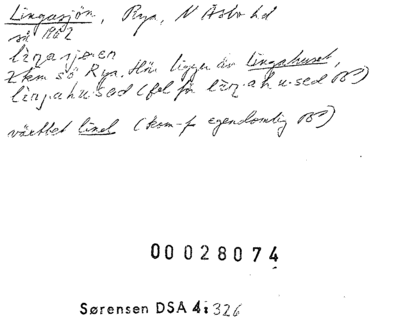 Lingasjön, Rya, N Åsbo hd
så 1962
liŋasjøen
2 km sö Rya. Här ligger äv Lingahuset,
liŋ·a·hu·sed (fel för läŋ·a·hu·sed B³)
växtbet linet (kom-p egendomlig B³)
00028074
Sørensen DSA 4: 326